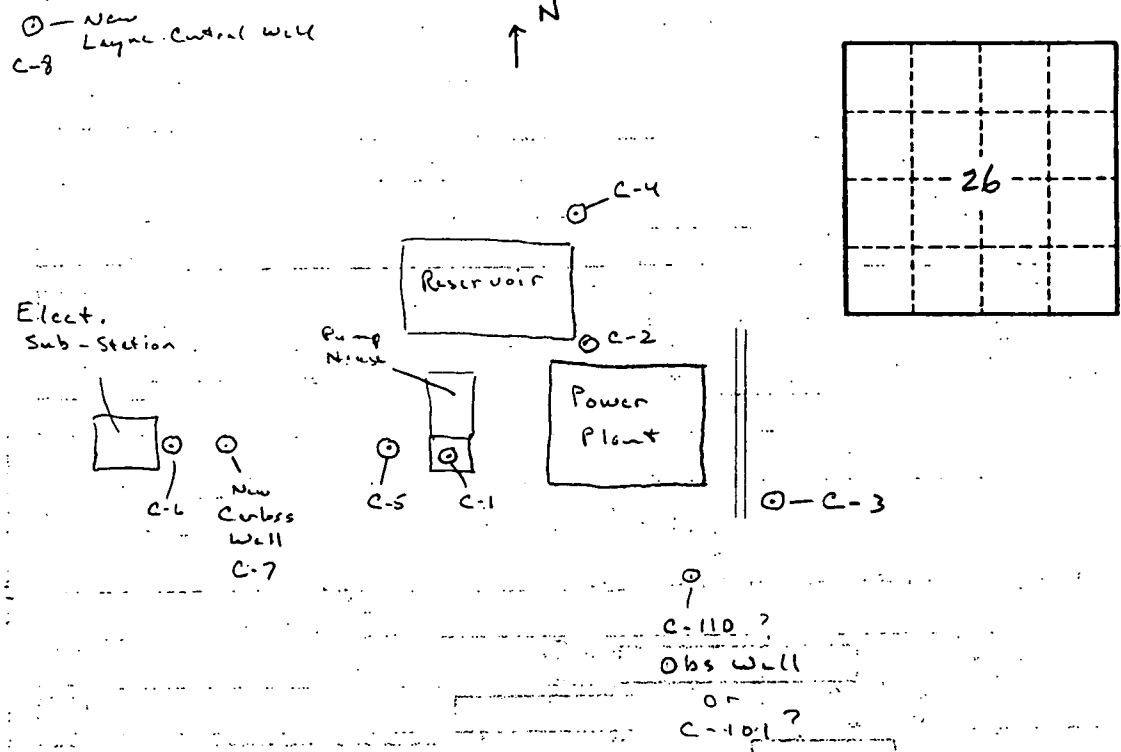 New
Layne-Central Well
C-8
N
26
C-4
Reservoir
Elect.
Sub-Station
Pump
House
C-2
Power
Plant
C-6
New
Well
C-7
C-5
C-1
C-3
C-110 ?
Obs Well
or
C-101 ?